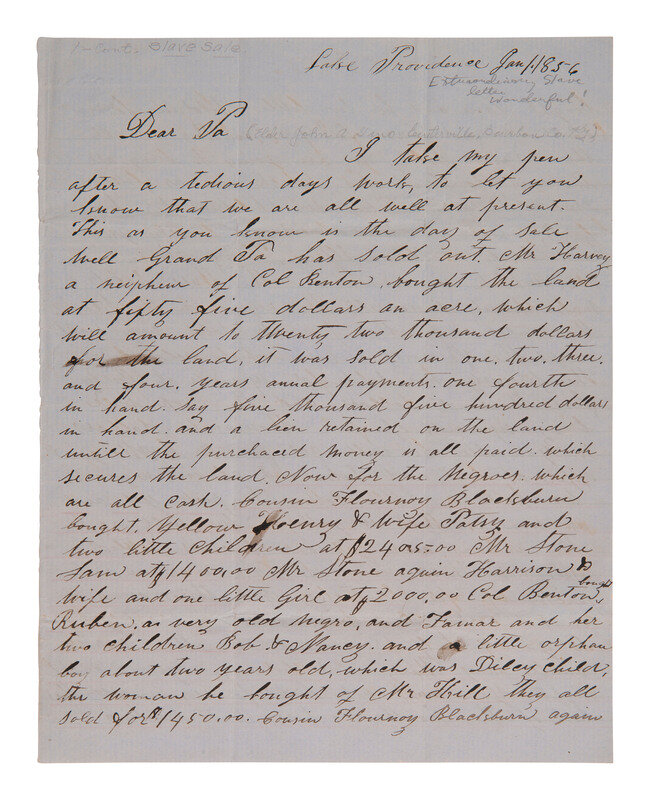 1- Cont. Slave Sale.
Lake Providence Jan 1. 1856
Extraordinary Slave
letter
Wonderful!
Dear Pa (Elder John A Centerville, Bourbon Co. Ky.)
I take my pen
after a tedious days work, to let you
know that we are all well at present.
This as you know is the day of sale
well Grand Pa has sold out. Mr Harvey
a neipheu of Col Benton, bought the land
at fifty five dollars an acre, which
will amount to twenty two thousand dollars
for the land, it was sold in one. two. three.
and four. years annual payments. one fourth
in hand. say five thousand five hundred dollars
in hand. and a lien retained on the land
untill the purchaced money is all paid. which
secures the land. Now for the Negroes. which
are all cash. Cousin Flournoy Blackburn
bought. Yellow Henry & wife Patsy and
two little Children at $2405-00 Mr Stone
Sam at $1400,00 Mr Stone again Harrison &
wife and one little Girl at $2000,00 Col Benton bought
Ruben. a very old negro, and Tamar and her
two children Bob. & Nancy. and a little orphan
boy about two years old, which was Dilcy child,
the woman he bought of Mr Hill they all
sold for $1450.00. Cousin Flournoy Blackburn again